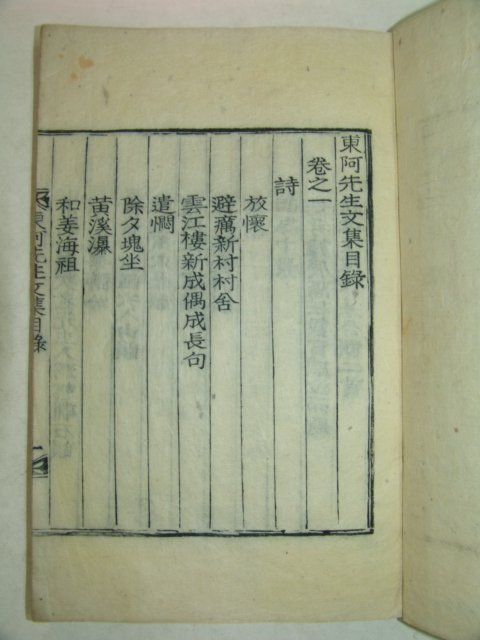 東阿先生文集目錄
卷之一
詩
放懷
避癘新村村舍
雲江樓新成偶成長句
遣悶
除夕塊坐
黃溪瀑
和姜海祖
東阿先生文集目錄
一